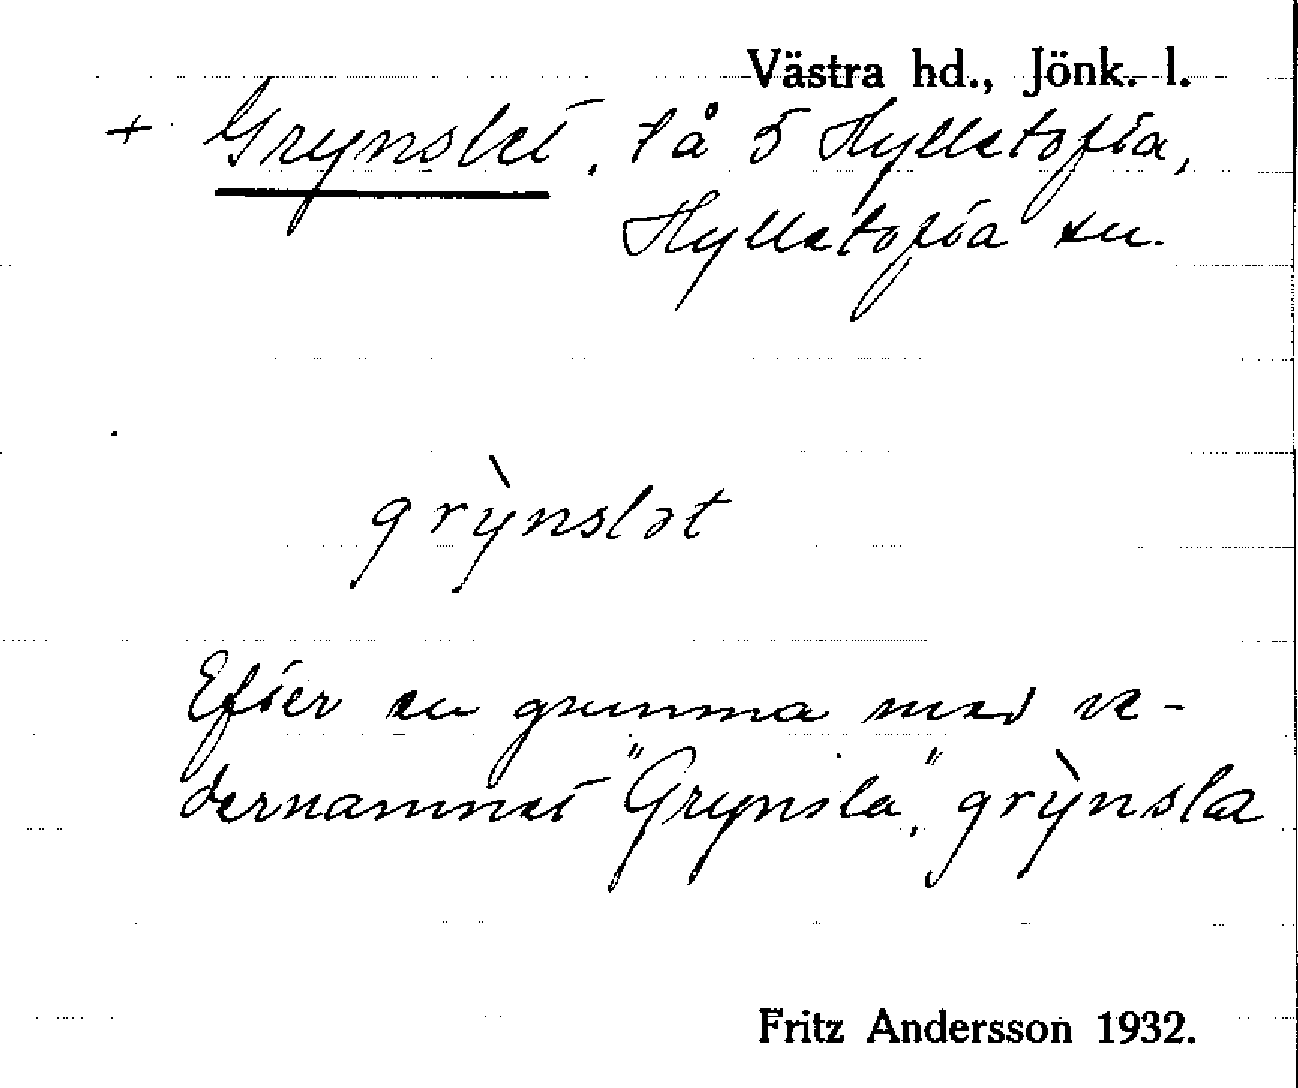 Västra hd., Jönk. l.
+ Grynslet, på 5 Hylletofta,
Hylletofta sn.
grỳnslət
Efter en gumma med ve-
dernamnet "Grynsla", grỳnsla
Fritz Andersson 1932.